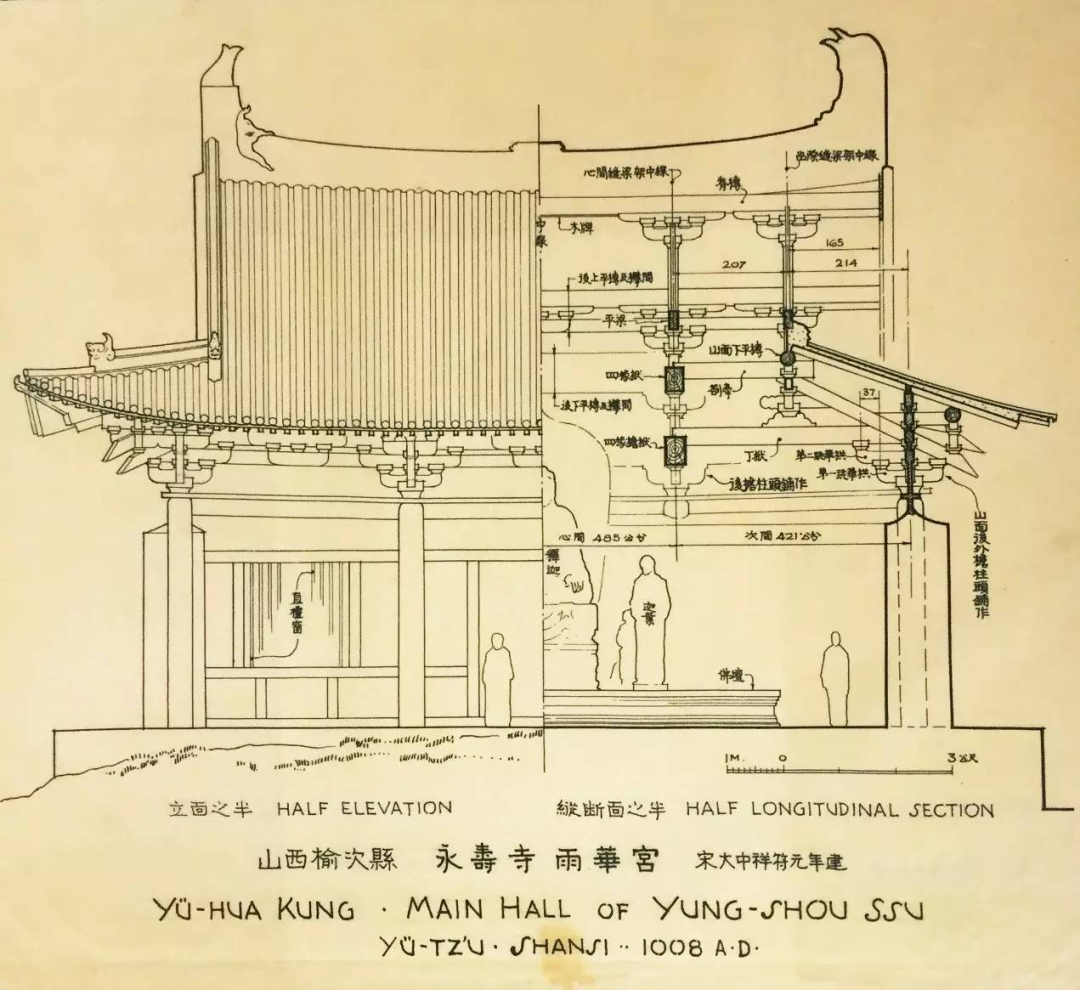 出際縫梁架中線
心間縫梁架中線
脊槫
中線
木牌
165
207
214
後上平槫及襻間
平梁
山面下平槫
四椽栿
劄牽
37
後下平槫及襻間
四椽檐栿
丁栿
第二跳華栱
第一跳華栱
後檐柱頭鋪作
山面後外檐柱頭鋪作
心間 485公分
次間 421公分
釋迦
迦葉
直櫺窗
佛壇
1M. 0 3公尺
立面之半 HALF ELEVATION
縱斷面之半 HALF LONGITUDINAL SECTION
山西榆次縣 永壽寺 雨華宮 宋大中祥符元年建
YÜ-HUA KUNG · MAIN HALL OF YUNG-SHOU SSU
YÜ-TZ'U · SHANSI ·· 1008 A·D·